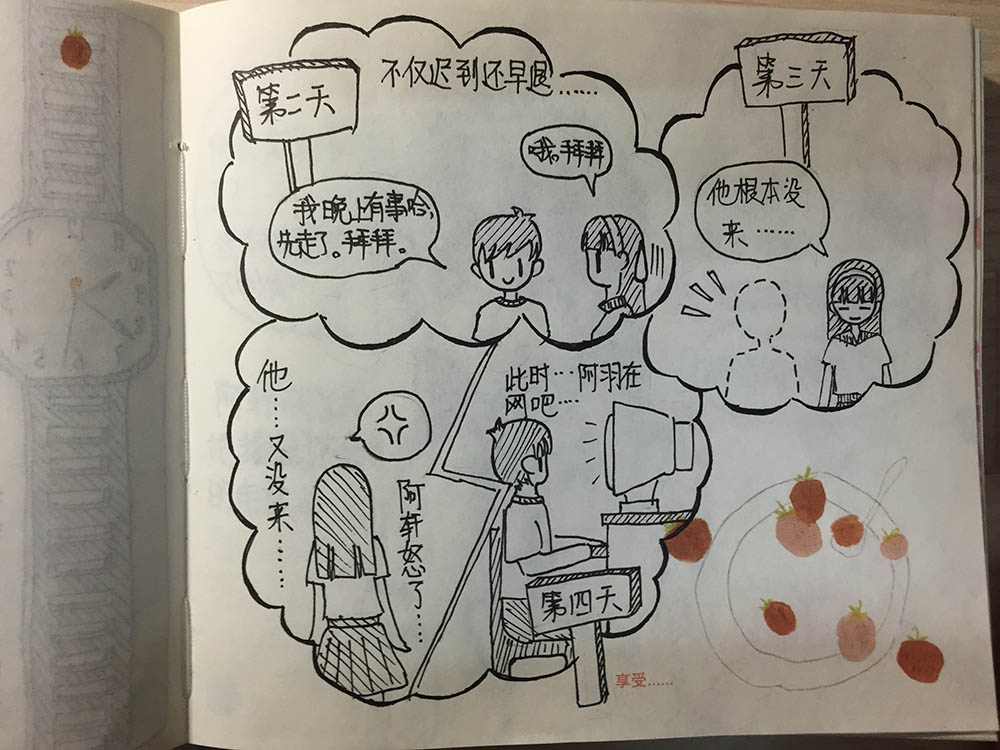 第二天
不仅迟到还早退……
哦。拜拜
我晚上有事哈,
先走了。拜拜。
第三天
他根本没
来……
他……又没来……
阿轩怒了……
此时…阿羽在
网吧…
第四天
享受……